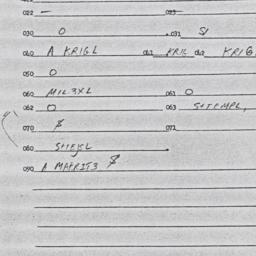 022 — 023
030 0 031 S/
040 A KRIGL 041 KRIL 042 KRIG
050 0
060 MIL3XL 061 0
062 0 063 S1TEMPL,
070 $ 071
080
090 A MAPRIT3 $